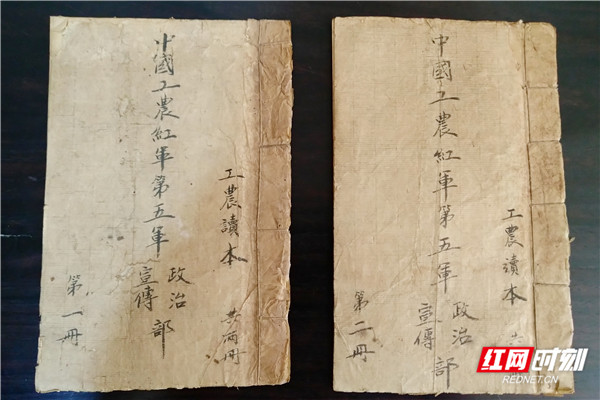 工農讀本 共兩冊
中國工農紅軍第五軍
政治
宣傳
部
第一冊
工農讀本
中國工農紅軍第五軍
政治
宣傳
部
第二冊
红网时刻
REDNET.CN